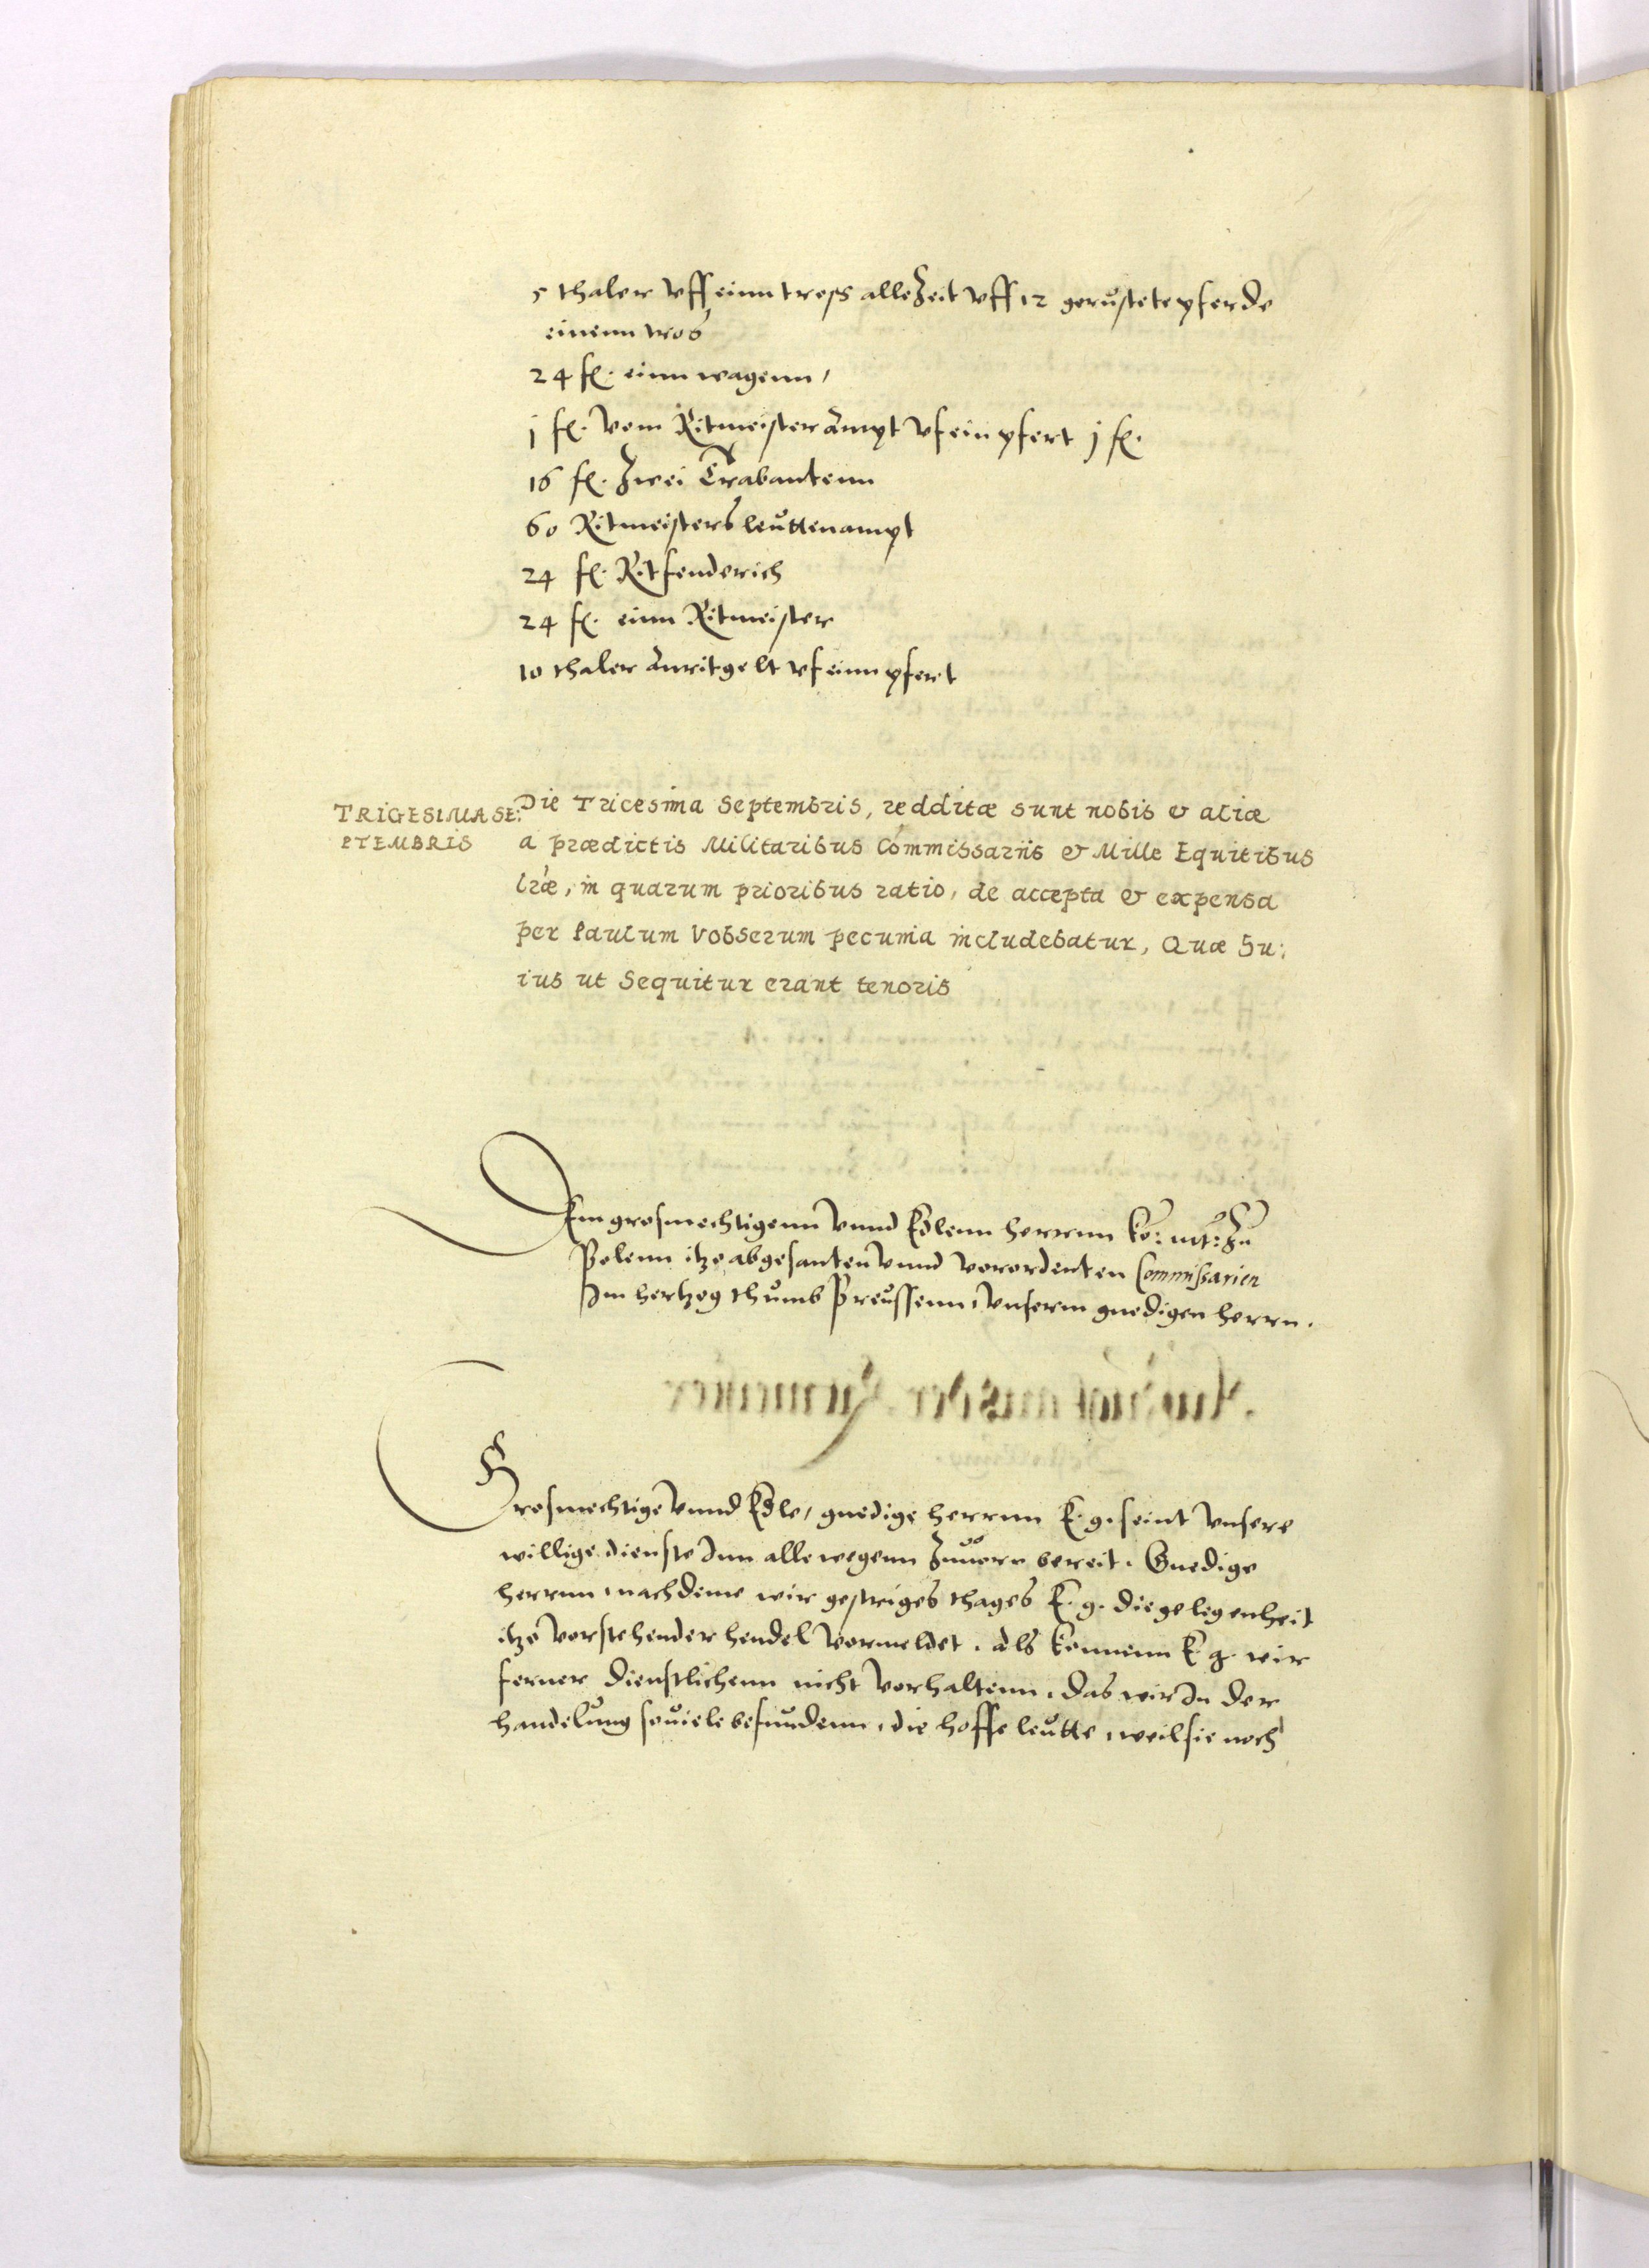 5 thaler vff einn tross alle Zeit vff 12 gerustete pferde
einenn tros
24 fl. einn wagenn,
j fl. vom Ritmeister Ampt vf ein pfert j fl.
16 fl. Zwei Trabantenn
60 Ritmeisters leuttenampt
24 fl. Ritfenderich
24 fl. einn Ritmeister
10 thaler Anritgelt vf einn pfert
TRIGESIMA SE:
PTEMBRIS
Die Tricesima Septembris, redditæ sunt nobis & aliæ
a prædictis Militaribus Commissariis & Mille Equitibus
lræ, in quarum prioribus ratio, de accepta & expensa
per Paulum Vobserum pecunia includebatur, Quæ Hu:
ius ut Sequitur erant tenoris
Den grosmechtigenn vnnd Edlenn herrnn Ko: Mt: Zu
Polenn itzo abgesanten vnnd verordenten Commissarien
Im hertzogthumb Preussenn, vnsernn gnedigen herrn.
Grosmechtige vnnd Edle, gnedige herrnn E. g. seint vnsere
willige dienste Inn allewegenn Zuuorn bereit. Gnedige
herrnn, nachdeme wir gestriges thages E. g. die gelegenheit
itzo vorstehender hendel vormeldet. als konnenn E g. wir
ferner dienstlichenn nicht vorhaltenn, das wir In der
handelung souiele befundenn, die hoffeleutte, weil sie noch